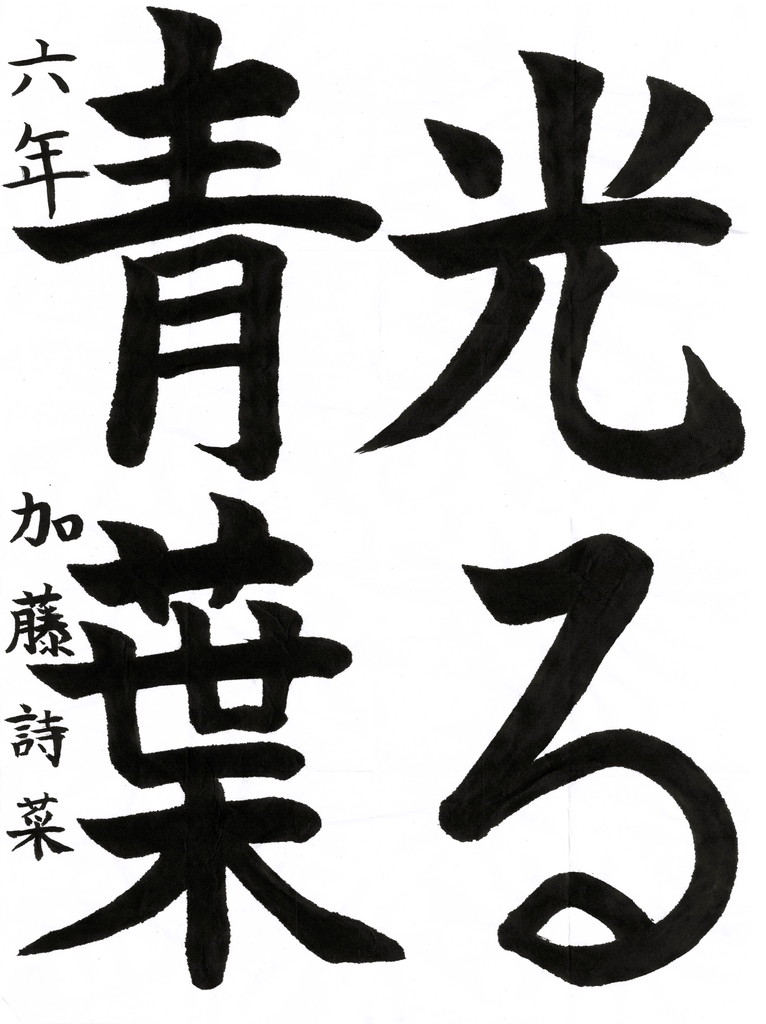 光る
青葉
六年 加藤詩菜